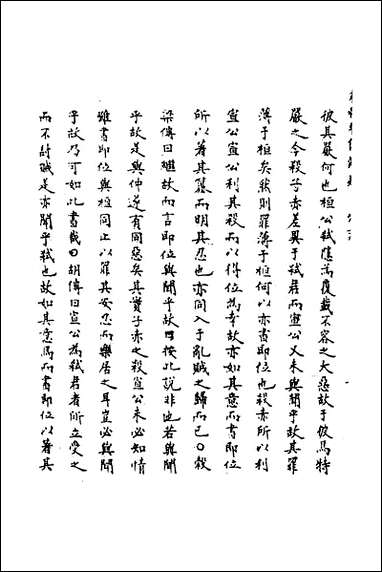 彼其嚴何也桓公弑隱為覆載不容之大惡故于彼焉特
嚴之今殺子赤差異于弑君而宣公又未與聞乎故其罪
薄于桓矣然則罪薄于桓何以亦書即位也殺赤所以利
宣公宣公利其殺而以得位為幸故亦如其意而書即位
所以著其簒而明其忍也亦同入于亂賊之歸而已○穀
梁傳曰繼故而言即位與聞乎故曰按此說非也若與聞
乎故是與仲遂有同惡矣其實子赤之殺宣公未必知情
雖書即位與桓同止以罪其安忍而樂居之耳豈必與聞
乎故乃可如此書哉○胡傳曰宣公為弑君者所立受之
而不討賊是亦聞乎弑也故如其意焉而書即位以著其